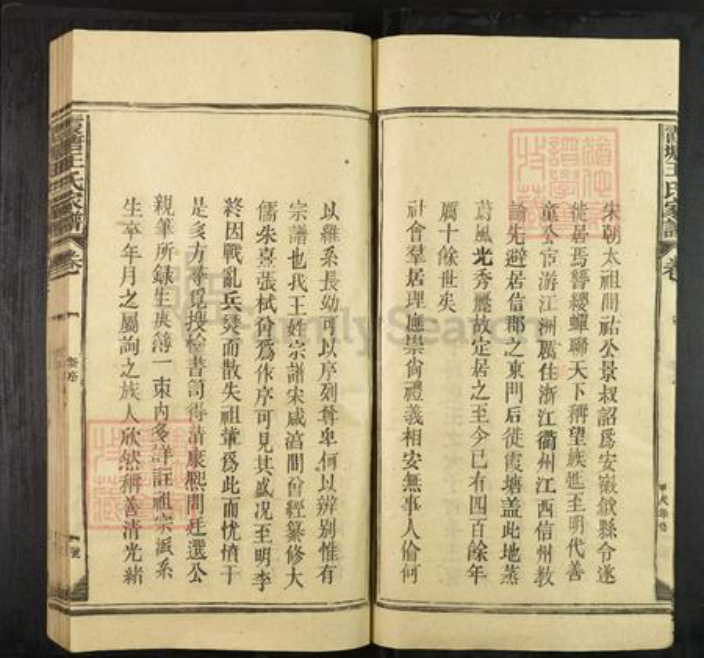 霞塘王氏家譜
宋朝太祖間祐公景叔詔爲安徽歙縣令遂
徙居焉簪纓蟬聯天下稱望族延至明代善
童公宦游江洲厲住浙江衢州江西信州教
諭先避居信郡之東門后徙霞塘盖此地蒸
蔚風光秀麗故定居之至今已有四百餘年
厲十餘世矣
社會羣居理應崇尙禮義相安無事人倫何
以維系長幼可以序列尊卑何以辨别惟有
宗譜也我王姓宗譜宋咸淳間曾經纂修大
儒朱熹張栻曾爲作序可見其盛况至明季
終因戰亂兵燹而散失祖輩爲此而忧憤于
是多方尋覓搜檢書笥得清康熙間廷選公
親筆所録生庚簿一束内多詳註祖宗派系
生卒年月之屬詢之族人欣然稱善清光緒
霞塘王氏家譜
卷
新序
號
FamilySearch